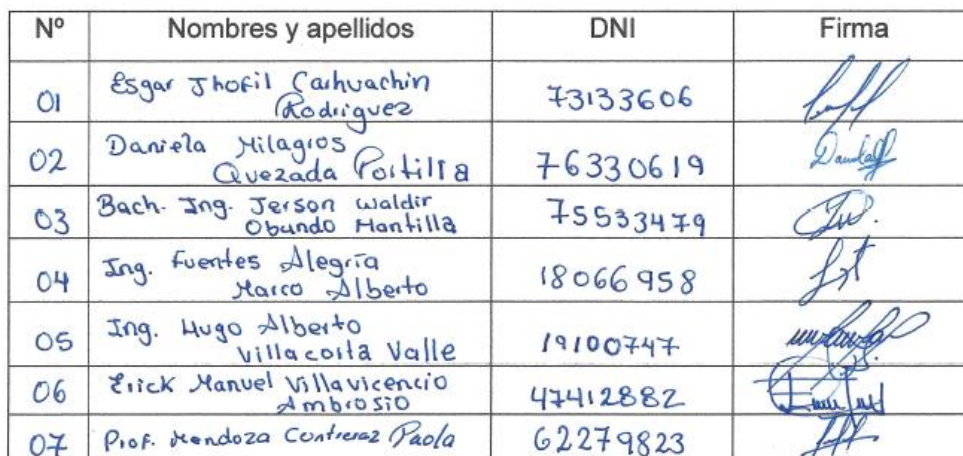 Nº Nombres y apellidos DNI Firma
01 Esgar Jhofil Carhuachin Rodriguez 73133606
02 Daniela Milagros Quezada Portilla 76330619
03 Bach. Ing. Jerson Waldir Obando Mantilla 75533479
04 Ing. Fuentes Alegría Marco Alberto 18066958
05 Ing. Hugo Alberto Villacorta Valle 19100747
06 Erick Manuel Villavicencio Ambrosio 47412882
07 Prof. Mendoza Contreraz Paola 62279823